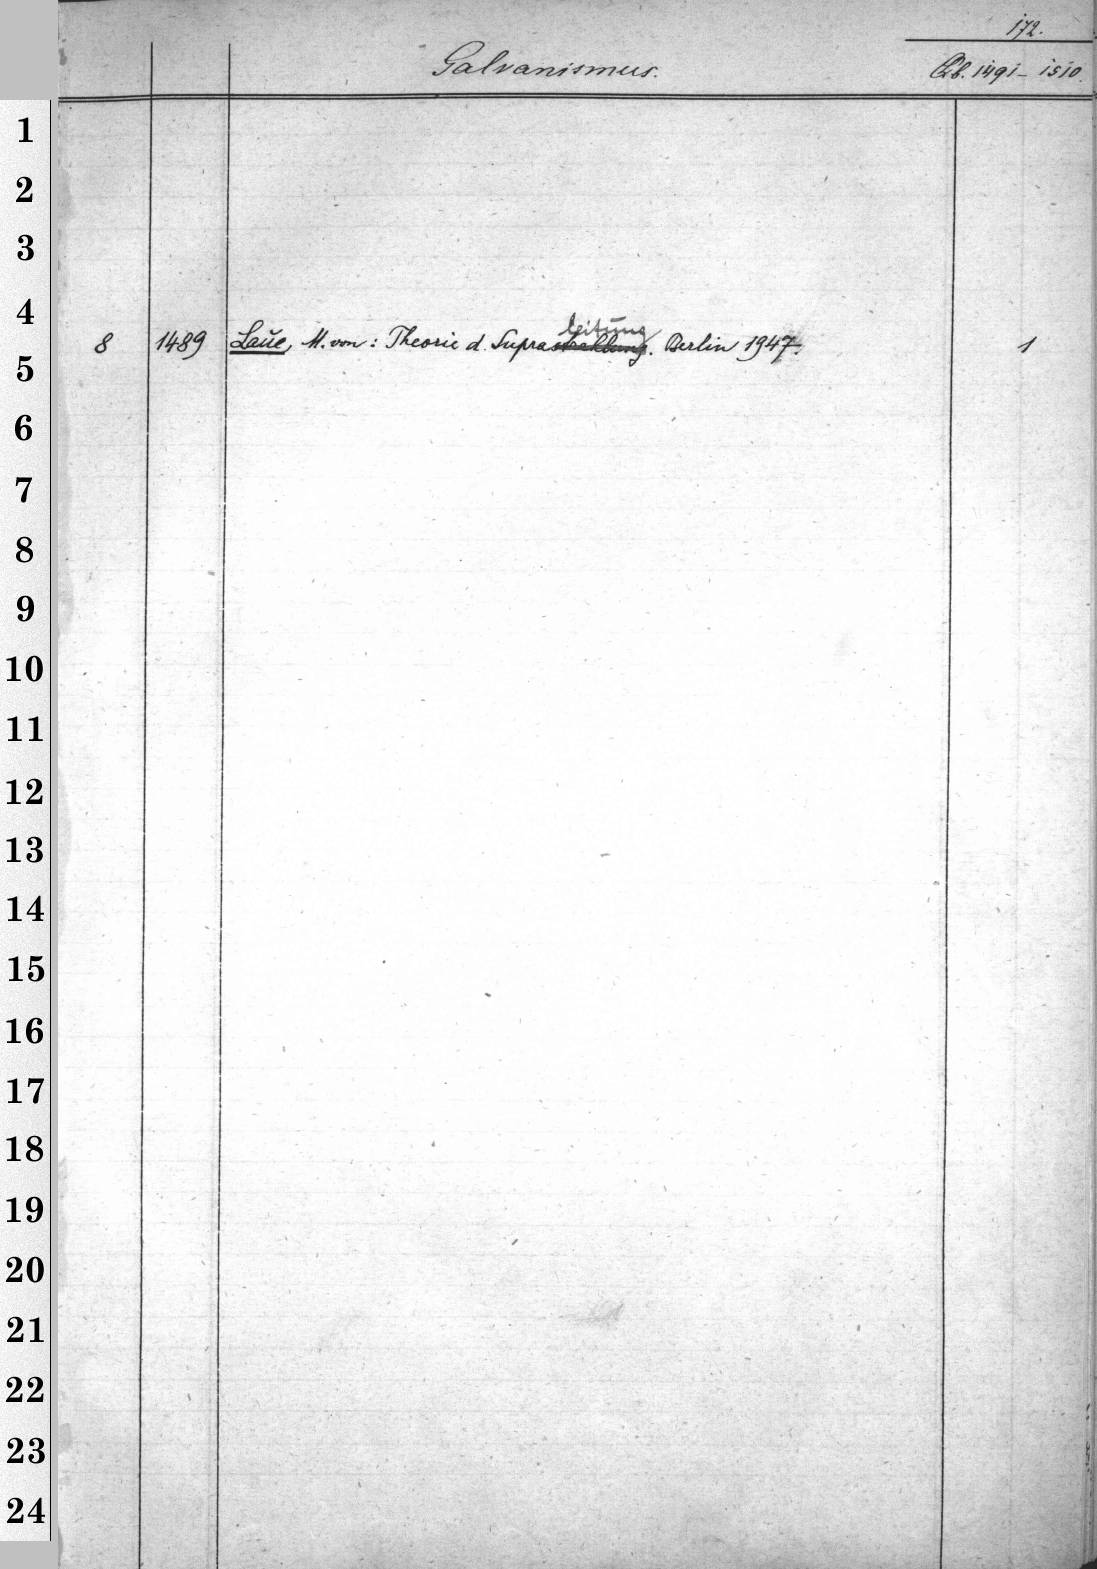 172.
Galvanismus.
Qb. 1491 – 1510.
1
2
3
4
leitung
8 1489 Laue, M. von: Theorie d. Suprastrahlung. Berlin 1947. 1
5
6
7
8
9
10
11
12
13
14
15
16
17
18
19
20
21
22
23
24